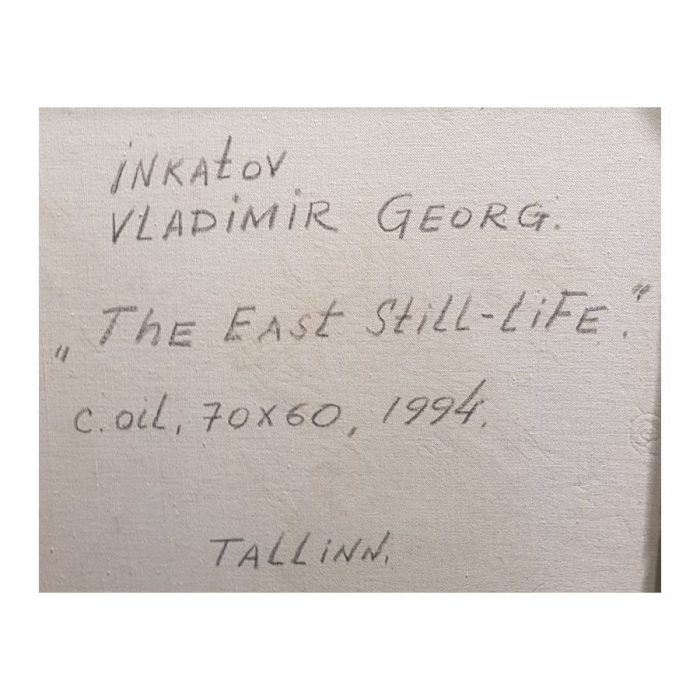 INKAtOV
VLADiMiR GEORG.
„ThE EAst Still-LiFE."
C. OiL, 70x60, 1994.
TALLiNN.